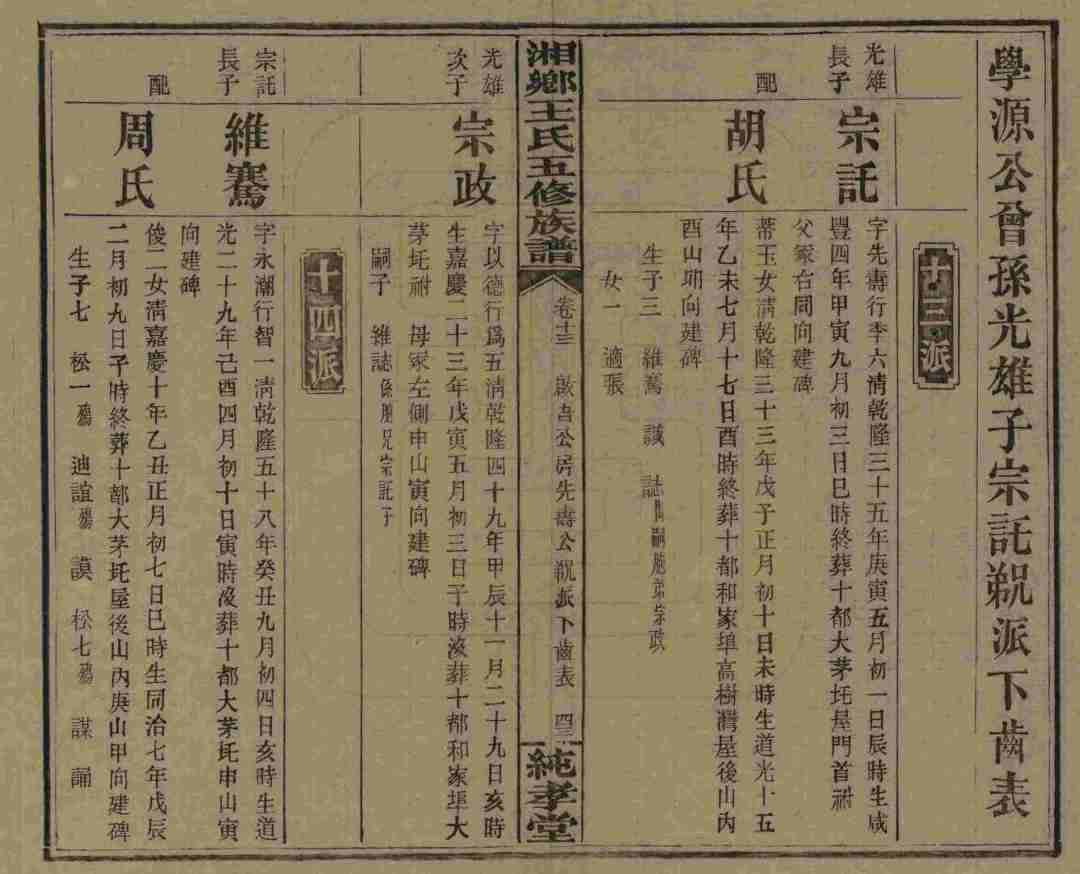 學源公曾孫光雄子宗託觬派下齒表
十三派
光雄
長子
宗託
字先壽行季六清乾隆三十五年庚寅五月初一日辰時生咸
豐四年甲寅九月初三日巳時終葬十都大茅坵屋門首祔
父冢右同向建碑
配
胡氏
蒂玉女清乾隆三十三年戊子正月初十日未時生道光十五
年乙未七月十七日酉時終葬十都和家埠高樹灣屋後山內
酉山卯向建碑
生子三 維騫 誠 誌出嗣胞弟宗政
女一 適張
湘鄉王氏五修族譜
卷十三 啟吾公房先壽公觬派下齒表 四三
純孝堂
光雄
次子
宗政
字以德行爲五清乾隆四十九年甲辰十一月二十九日亥時
生嘉慶二十三年戊寅五月初三日子時沒葬十都和家埠大
茅坵祔 母冢左側申山寅向建碑
嗣子 維誌係胞兄宗託子
十四派
宗託
長子
維騫
字永潮行智一清乾隆五十八年癸丑九月初四日亥時生道
光二十九年己酉四月初十日寅時沒葬十都大茅坵申山寅
向建碑
配
周氏
俊二女清嘉慶十年乙丑正月初七日巳時生同治七年戊辰
二月初九日子時終葬十都大茅坵屋後山內庚山甲向建碑
生子七 松一殤 迪誼殤 謨 松七殤 謀 誦